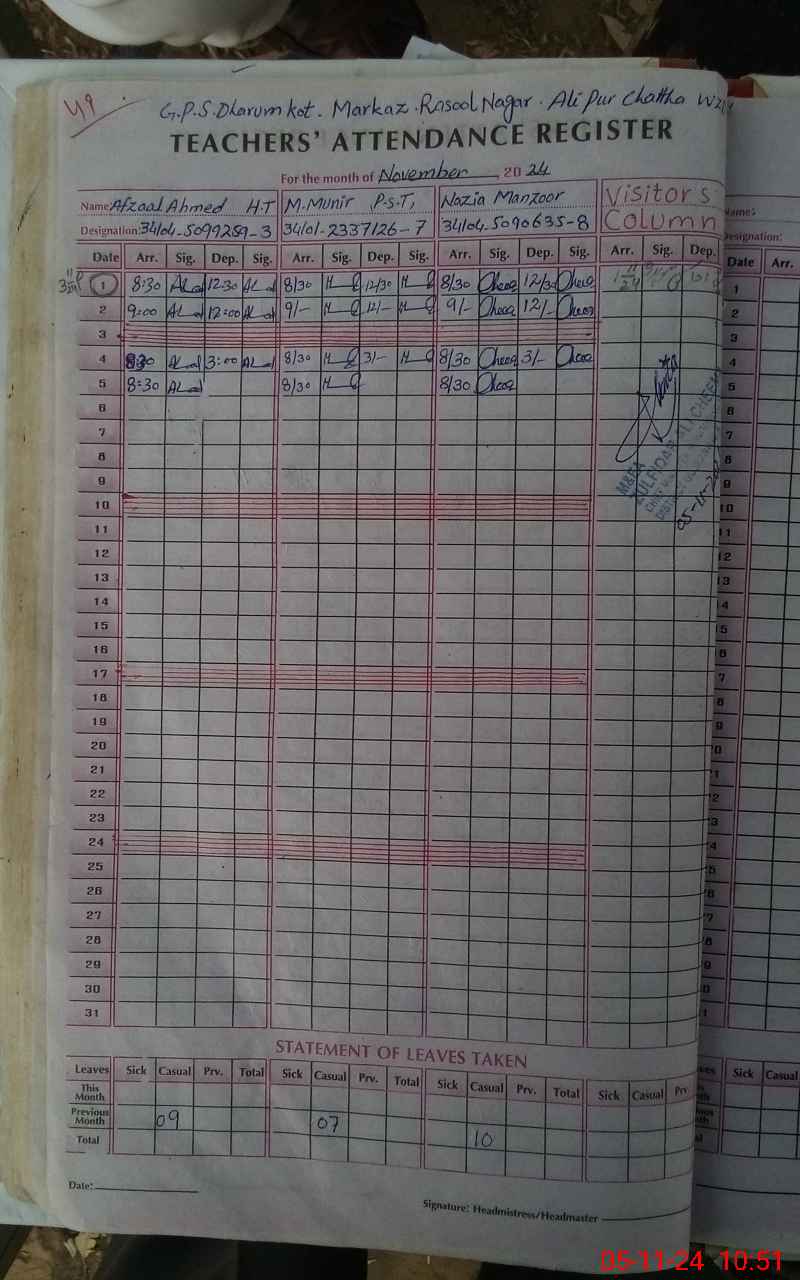 49
G.P.S. Dharum kot. Markaz. Rasool Nagar. Ali Pur Chattha
TEACHERS' ATTENDANCE REGISTER
For the month of November 2024
Name: Afzaal Ahmed H.T M. Munir P.S.T, Nazia Manzoor Visitors
Designation: 34104-5099259-3 34101-2337126-7 34104-5090635-8 Column
Date Arr. Sig. Dep. Sig. Arr. Sig. Dep. Sig. Arr. Sig. Dep. Sig. Arr. Sig. Dep.
1 8:30 12:30 8/30 12/30 8/30 12/30
2 9:00 12:00 9/- 12/- 9/- 12/-
3
4 8:30 3:00 8/30 3/- 8/30 3/-
5 8:30 8/30 8/30
6
7
8
9
10
11
12
13
14
15
16
17
18
19
20
21
22
23
24
25
26
27
28
29
30
31
M&EA
05-11-24
STATEMENT OF LEAVES TAKEN
Leaves Sick Casual Prv. Total Sick Casual Prv. Total Sick Casual Prv. Total Sick Casual Prv.
This Month
Previous Month 09 07
Total 10
Date:
Signature: Headmistress/Headmaster
Name:
Designation:
Date Arr.
1
2
3
4
5
6
7
8
9
10
11
12
13
Sick Casual
05-11-24 10:51